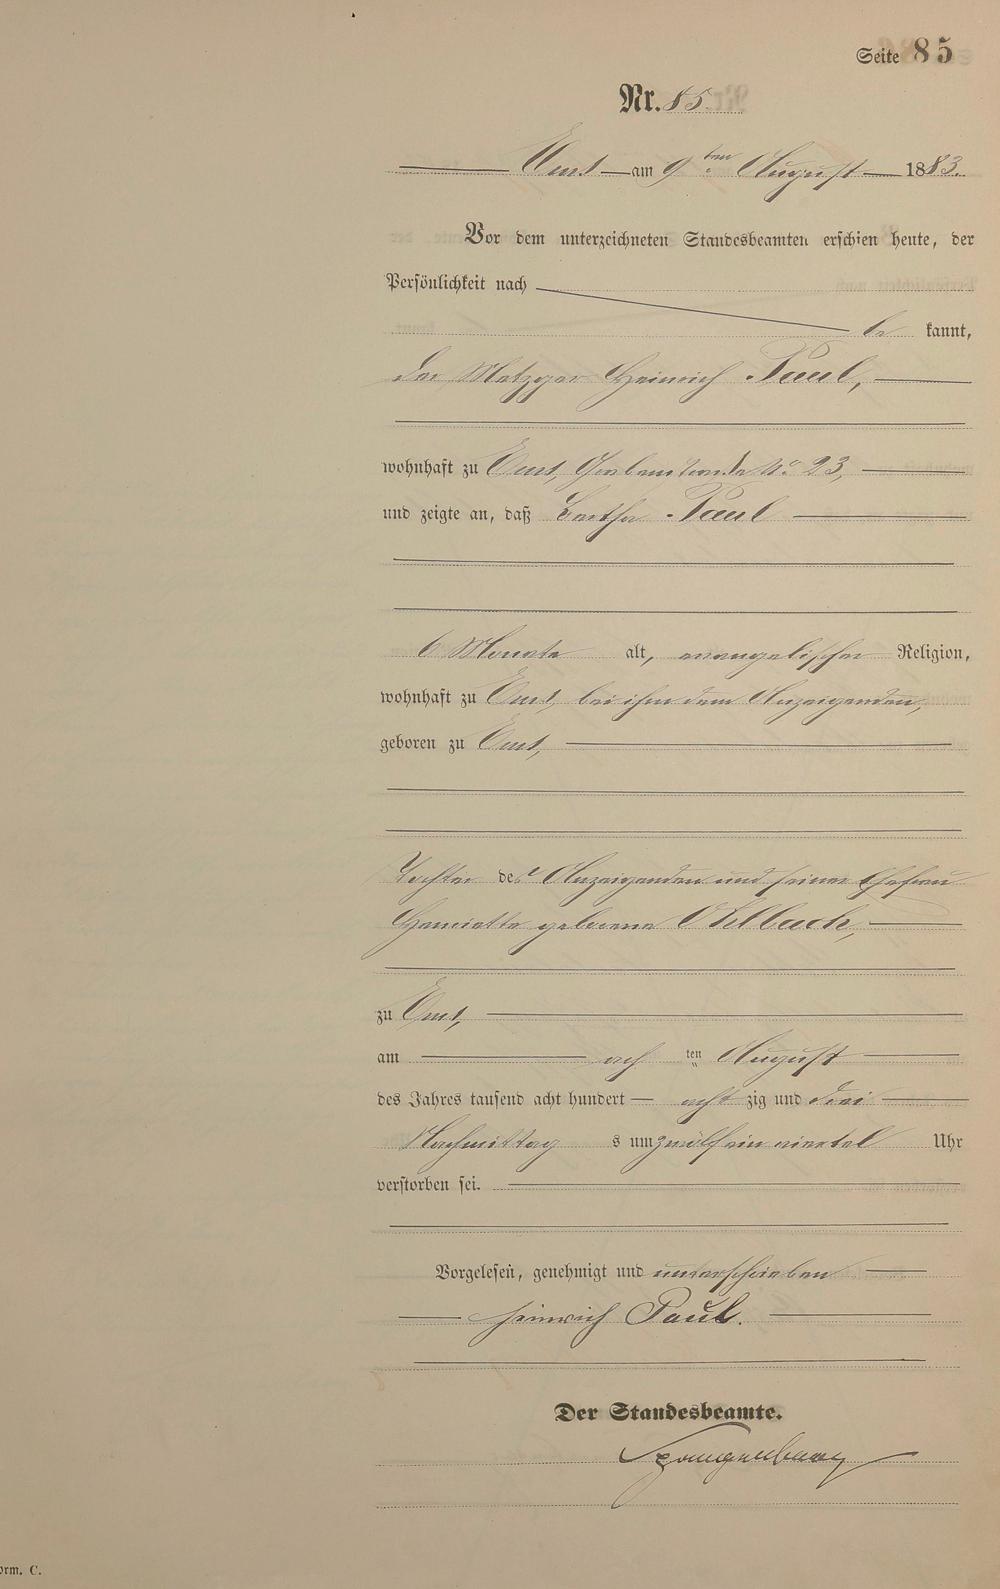 Seite 85
Nr. 85.
Ems am 9ten August 1883.
Vor dem unterzeichneten Standesbeamten erschien heute, der
Persönlichkeit nach
be kannt,
der Metzger Heinrich Paul,
wohnhaft zu Ems, Grabenstraße No 23,
und zeigte an, daß Bertha Paul
6 Monate alt, evangelischer Religion,
wohnhaft zu Ems, bei ihm dem Anzeigenden,
geboren zu Ems,
Tochter des Anzeigenden und seiner Ehefrau
Henriette geborene Ohlbach,
zu Ems,
am ach ten August
des Jahres tausend acht hundert acht zig und drei
Nachmittag s um zwölf ein viertel Uhr
verstorben sei.
Vorgelesen, genehmigt und unterschrieben
Heinrich Paul.
Der Standesbeamte.
orm. C.